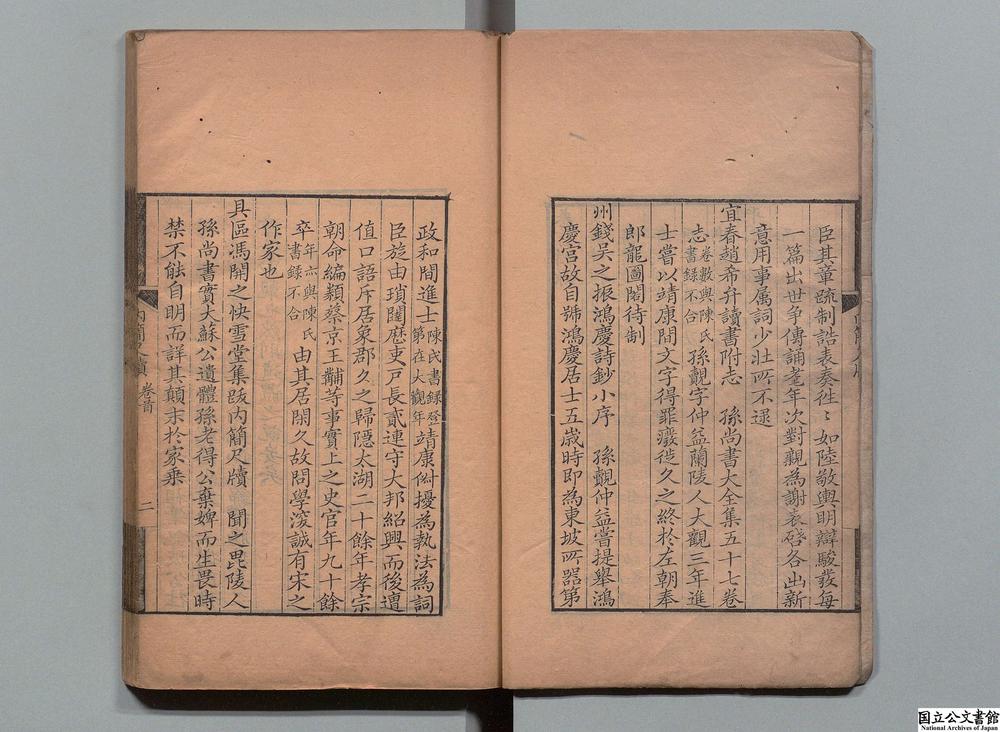 臣其章疏制誥表奏徃〻如陸敬輿明辯駿發每
一篇出世爭傳誦耄年次對觀為謝表啓各出新
意用事属詞少壯所不逮
宜春趙希弁讀書附志　孫尚書大全集五十七卷
志卷數與陳氏書錄不合　孫覿字仲益蘭陵人大觀三年進
士嘗以靖康間文字得罪徙久之終於左朝奉
郎龍圖閣待制
州錢吴之振鴻慶詩鈔小序　孫覿仲益嘗提舉鴻
慶宫故自號鴻慶居士五歳時即為東坡所器第
政和閒進士陳氏書錄登第在大觀年靖康俶擾為執法為詞
臣旋由瑣闥歷吏戶長貳連守大邦紹興而後遭
值口語斥居象郡久之歸隱太湖二十餘年孝宗
朝命編類蔡京王黼等事實上之史官年九十餘
卒年亦與陳氏書錄不合由其居閑久故問學濅誠有宋之
作家也
具區馮開之快雪堂集跋内簡尺牘　聞之毘陵人
孫尚書實大蘇公遺體孫老得公棄婢而生畏時
禁不能自明而詳其顛末於家乘
内簡尺牘　卷首　二
国立公文書館
National Archives of Japan